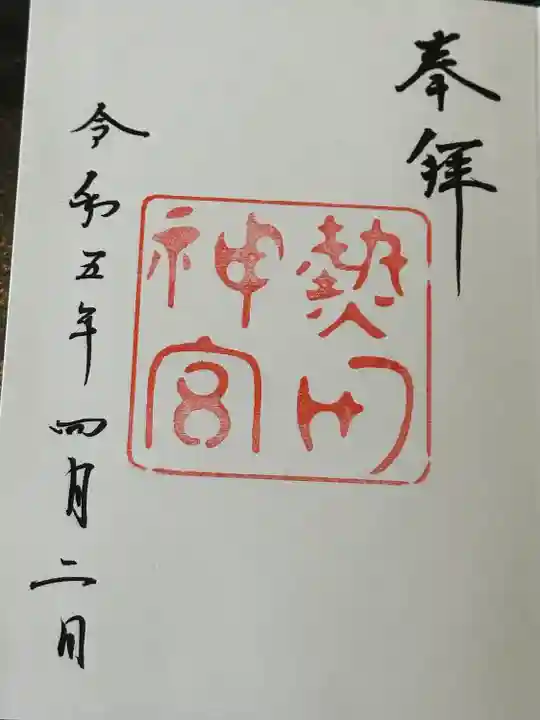 奉拜
熱田
神宮
令和五年四月二日